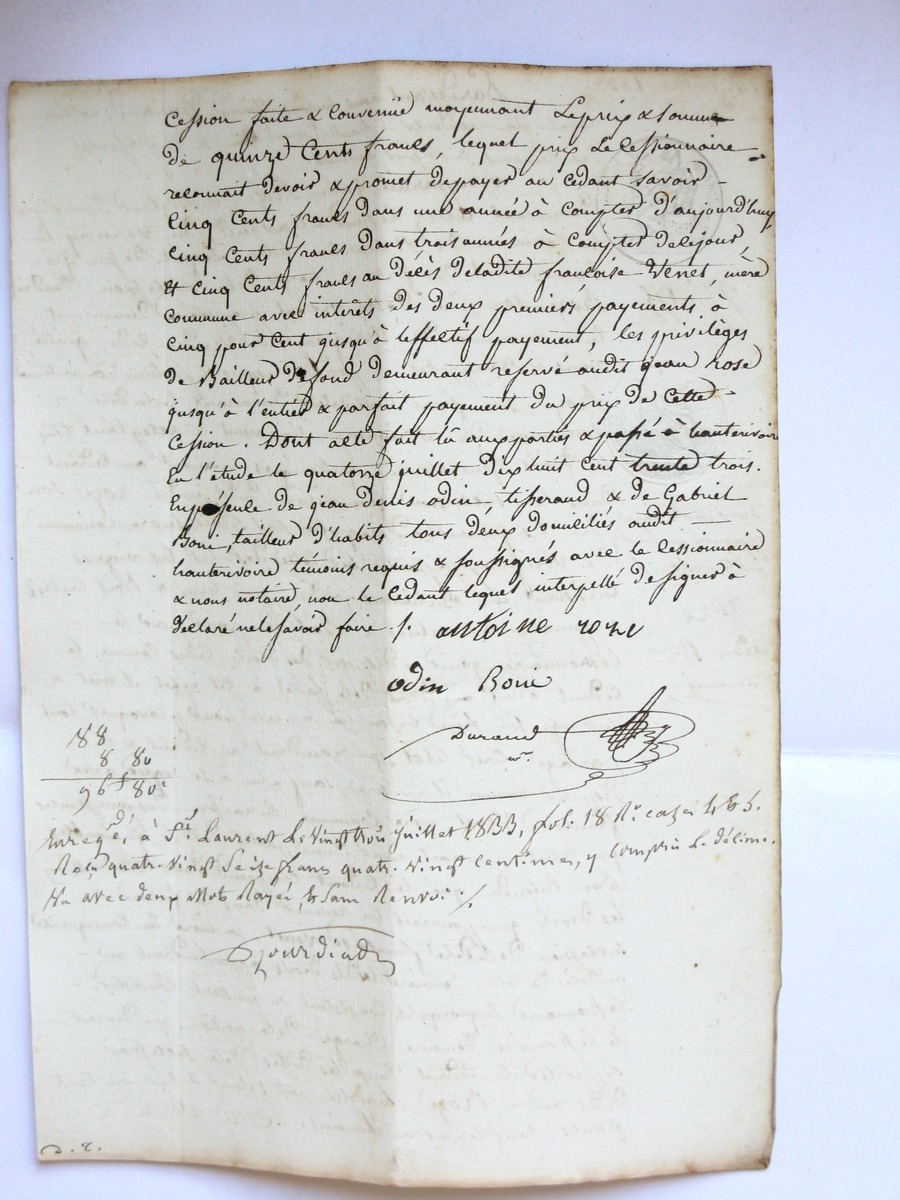 Cession faite & Convenüe moyennant Le prix & somme
de quinze Cents francs, lequel prix Le Cessionnaire
reconnait devoir & promet de payer au Cedant savoir -
Cinq Cents francs dans une année à Compter d'aujourd'huy,
Cinq Cents francs dans trois années à Compter de ce jour,
Et Cinq Cents francs au décès de ladite françoise Venet, mère
Commune avec interêts des deux premiers payements à
Cinq pour Cent jusqu'à l'effectif payement, les privilèges
de Bailleur de fond demeurant reservé audit jean rose
jusqu'à l'entier & parfait payement du prix de Cette -
Cession. Dont acte fait lû aux parties & passé à hauterivoire
En l'étude le quatorze juillet dix huit Cent trente trois.
En présence de jean denis odin, tisserand & de Gabriel
Boni, tailleur d'habits tous deux domiciliés audit —
hauterivoire témoins requis & soussignés avec le Cessionnaire
& nous notaire, non le Cedant lequel interpellé de signer à
déclaré ne le savoir faire ./. antoine roze
odin Boni
Durand
nre.
88
8 80
96f 80c
Enregé. à St. Laurent Le Vingt trois juillet 1833, fol: 18 Ro. cases 4 & 5.
Reçu quatre-vingt Seize francs quatre-vingt Centimes, y Compris Le décime.
Vu avec deux Mots Rayés, & Sans Renvoi ./.
D. R.